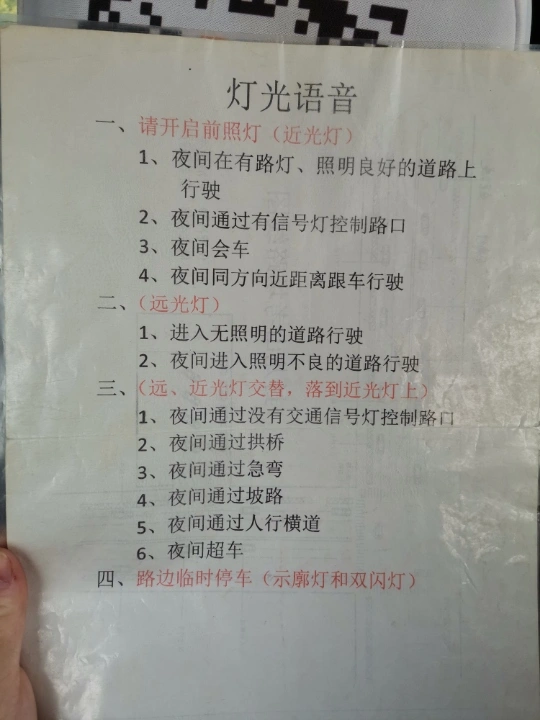 灯光语音
一、请开启前照灯（近光灯）
1、夜间在有路灯、照明良好的道路上
行驶
2、夜间通过有信号灯控制路口
3、夜间会车
4、夜间同方向近距离跟车行驶
二、（远光灯）
1、进入无照明的道路行驶
2、夜间进入照明不良的道路行驶
三、（远、近光灯交替，落到近光灯上）
1、夜间通过没有交通信号灯控制路口
2、夜间通过拱桥
3、夜间通过急弯
4、夜间通过坡路
5、夜间通过人行横道
6、夜间超车
四、路边临时停车（示廓灯和双闪灯）